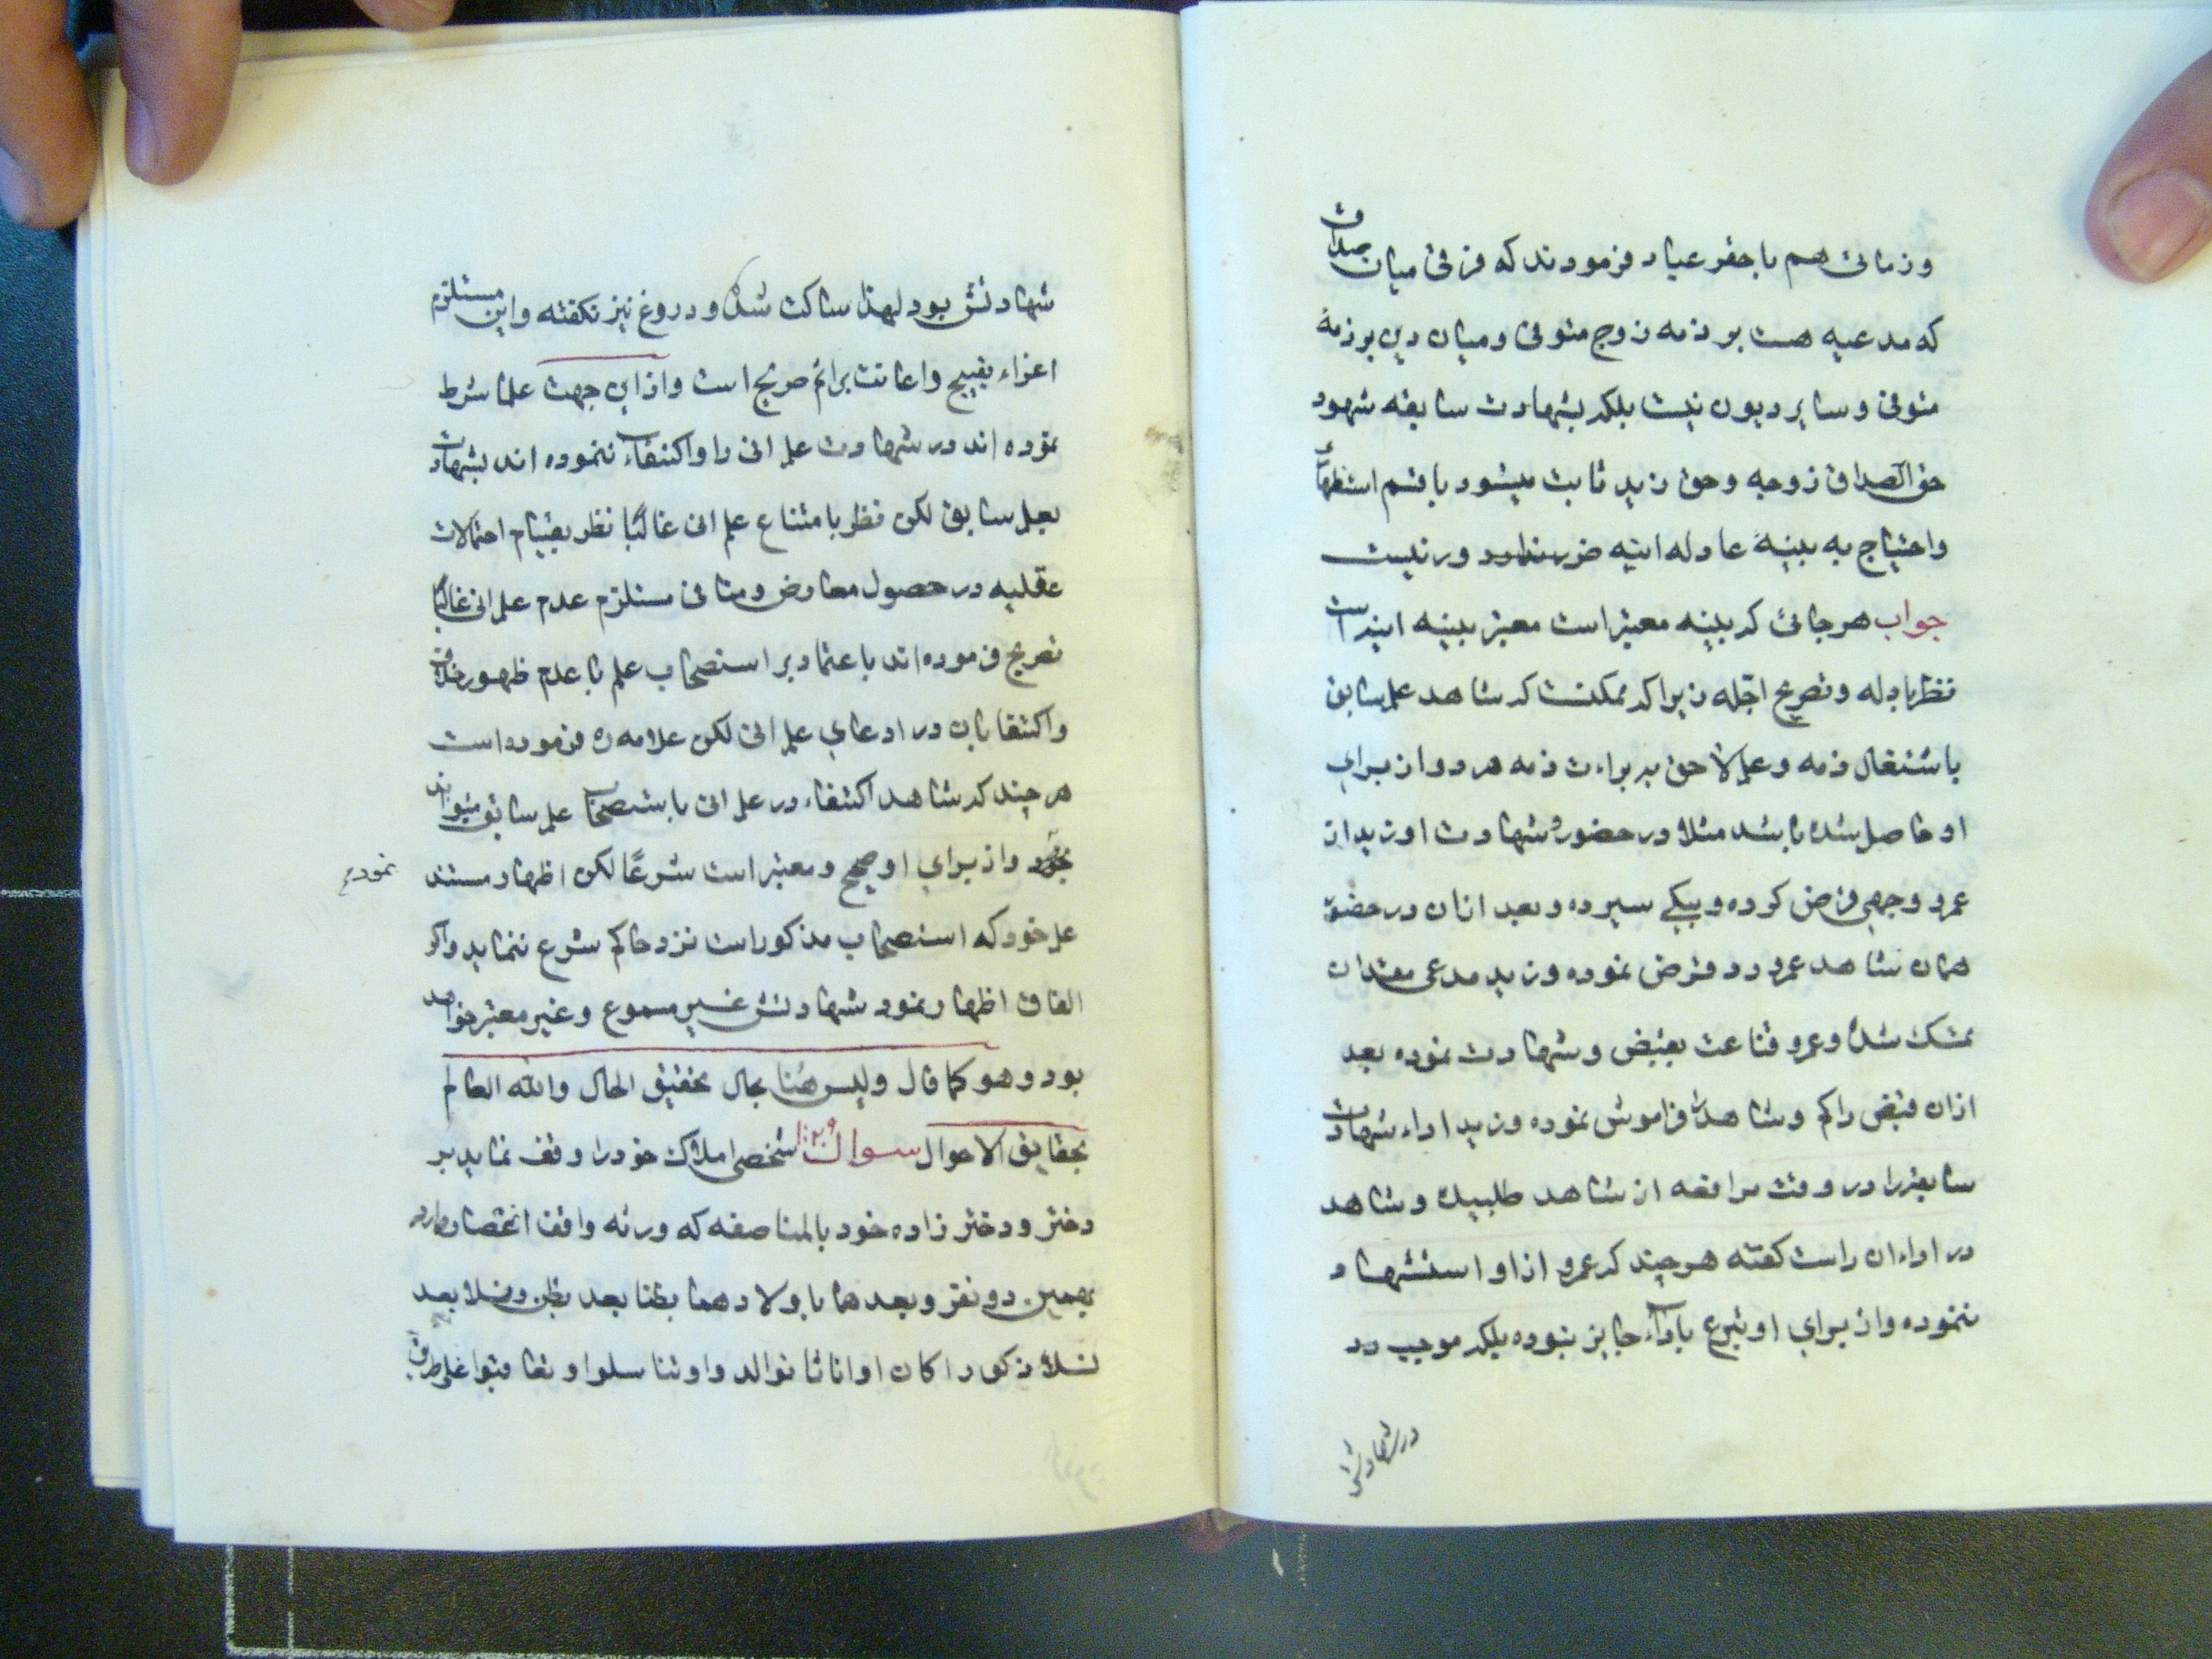 و زمانی هم باحقر عباد فرمودند که فرقی میان صداق
که مدعیه هست بر ذمه زوج متوفی و میان دین بر ذمهٔ
متوفی و سایر دیون نیست بلکه بشهادت سابقه شهود
حق الصداق زوجه و حق زید ثابت میشود با قسم استظهاری
و احتیاج به بینهٔ عادله انیه ضرور نیست
جواب هر جائی که بینه معتبر است معتبر بینیه اینه است
نظر بادله و تصریح اجله زیرا که ممکنست که شاهد علم سابق
باشتغال ذمه و علم لاحق به براءت ذمه هر دو از برای
او حاصل شده باشد مثلا در حضور و شهادت او زید از
عمرو وجهی قرض کرده و بیکی سپرده و بعد ازان در حضور
همان شاهد عمرو رد قرض نموده و زید مدعی فقدان
تمسک شده و عمرو قناعت بقبض و شهادت نموده بعد
ازان قبض را کم و شاهد را فراموش نموده و زید اداء شهادت
سابقه را در وقت مرافعه از شاهد طلبیده و شاهد
در اداء ان راست گفته هر چند که عمرو از او استشهاد
ننموده و از برای او تبرع باداء جایز نبوده بلکه موجب رد
در شهادتش
شهادتش بود لهذا ساکت شده و دروغ نیز نگفته و این مستلزم
اغراء بقبیح و اعانت بر اثم صریح است و ازاین جهت علما شرط
نموده اند در شهادت علم انی را و اکتفاء ننموده اند بشهادت
بعلم سابق لکن نظر بامتناع علم انی غالبًا نظر بقیام احتمالات
عقلیه در حصول معارض و منافی مستلزم عدم علم انی غالبًا
تصریح فرموده اند باعتماد بر استصحاب علم با عدم ظهور خلاف
و اکتفا بان در ادعای علم انی لکن علامه ره فرموده است
هر چند که شاهد اکتفاء در علم انی باستصحاب علم سابق میتواند
نمود و از برای او صحیح و معتبر است شرعًا لکن اظهار مستند
نمود صح
علم خود که استصحاب مذکور است نزد حاکم شرع ننماید و اگر
اتفاق اظهار نمود شهادتش غیر مسموع و غیر معتبر خواهد
بود و هو کما قال و لیس هُنا مجال تحقیق الحال والله العالم
بحقایق الاحوال سوال شخصی املاک خود را وقف نماید بر
دختر و دختر زاده خود بالمناصفه که ورثه واقف انحصار دارد
بهمین دو نفر و بعدهما باولادهما بطنا بعد بطن و نسلا بعد
نسلٍ ذکورا کان او اناثا توالدوا و تناسلوا و تعاقبوا علی طریق